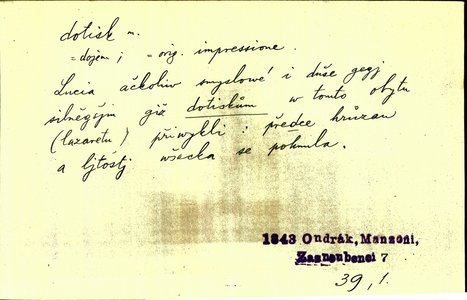 dotisk m.
= dojem; = orig. impressione.
Lucia ačkoliw smyslowé i duše gegj
silněgšjm giž dotiskům w tomto obytu
(lazaretu) přiwykli: předce hrůzau
a ljtostj wšecka se pohnula.
1843 Ondrák, Manzoni,
Zasnoubenci 7
39, 1.